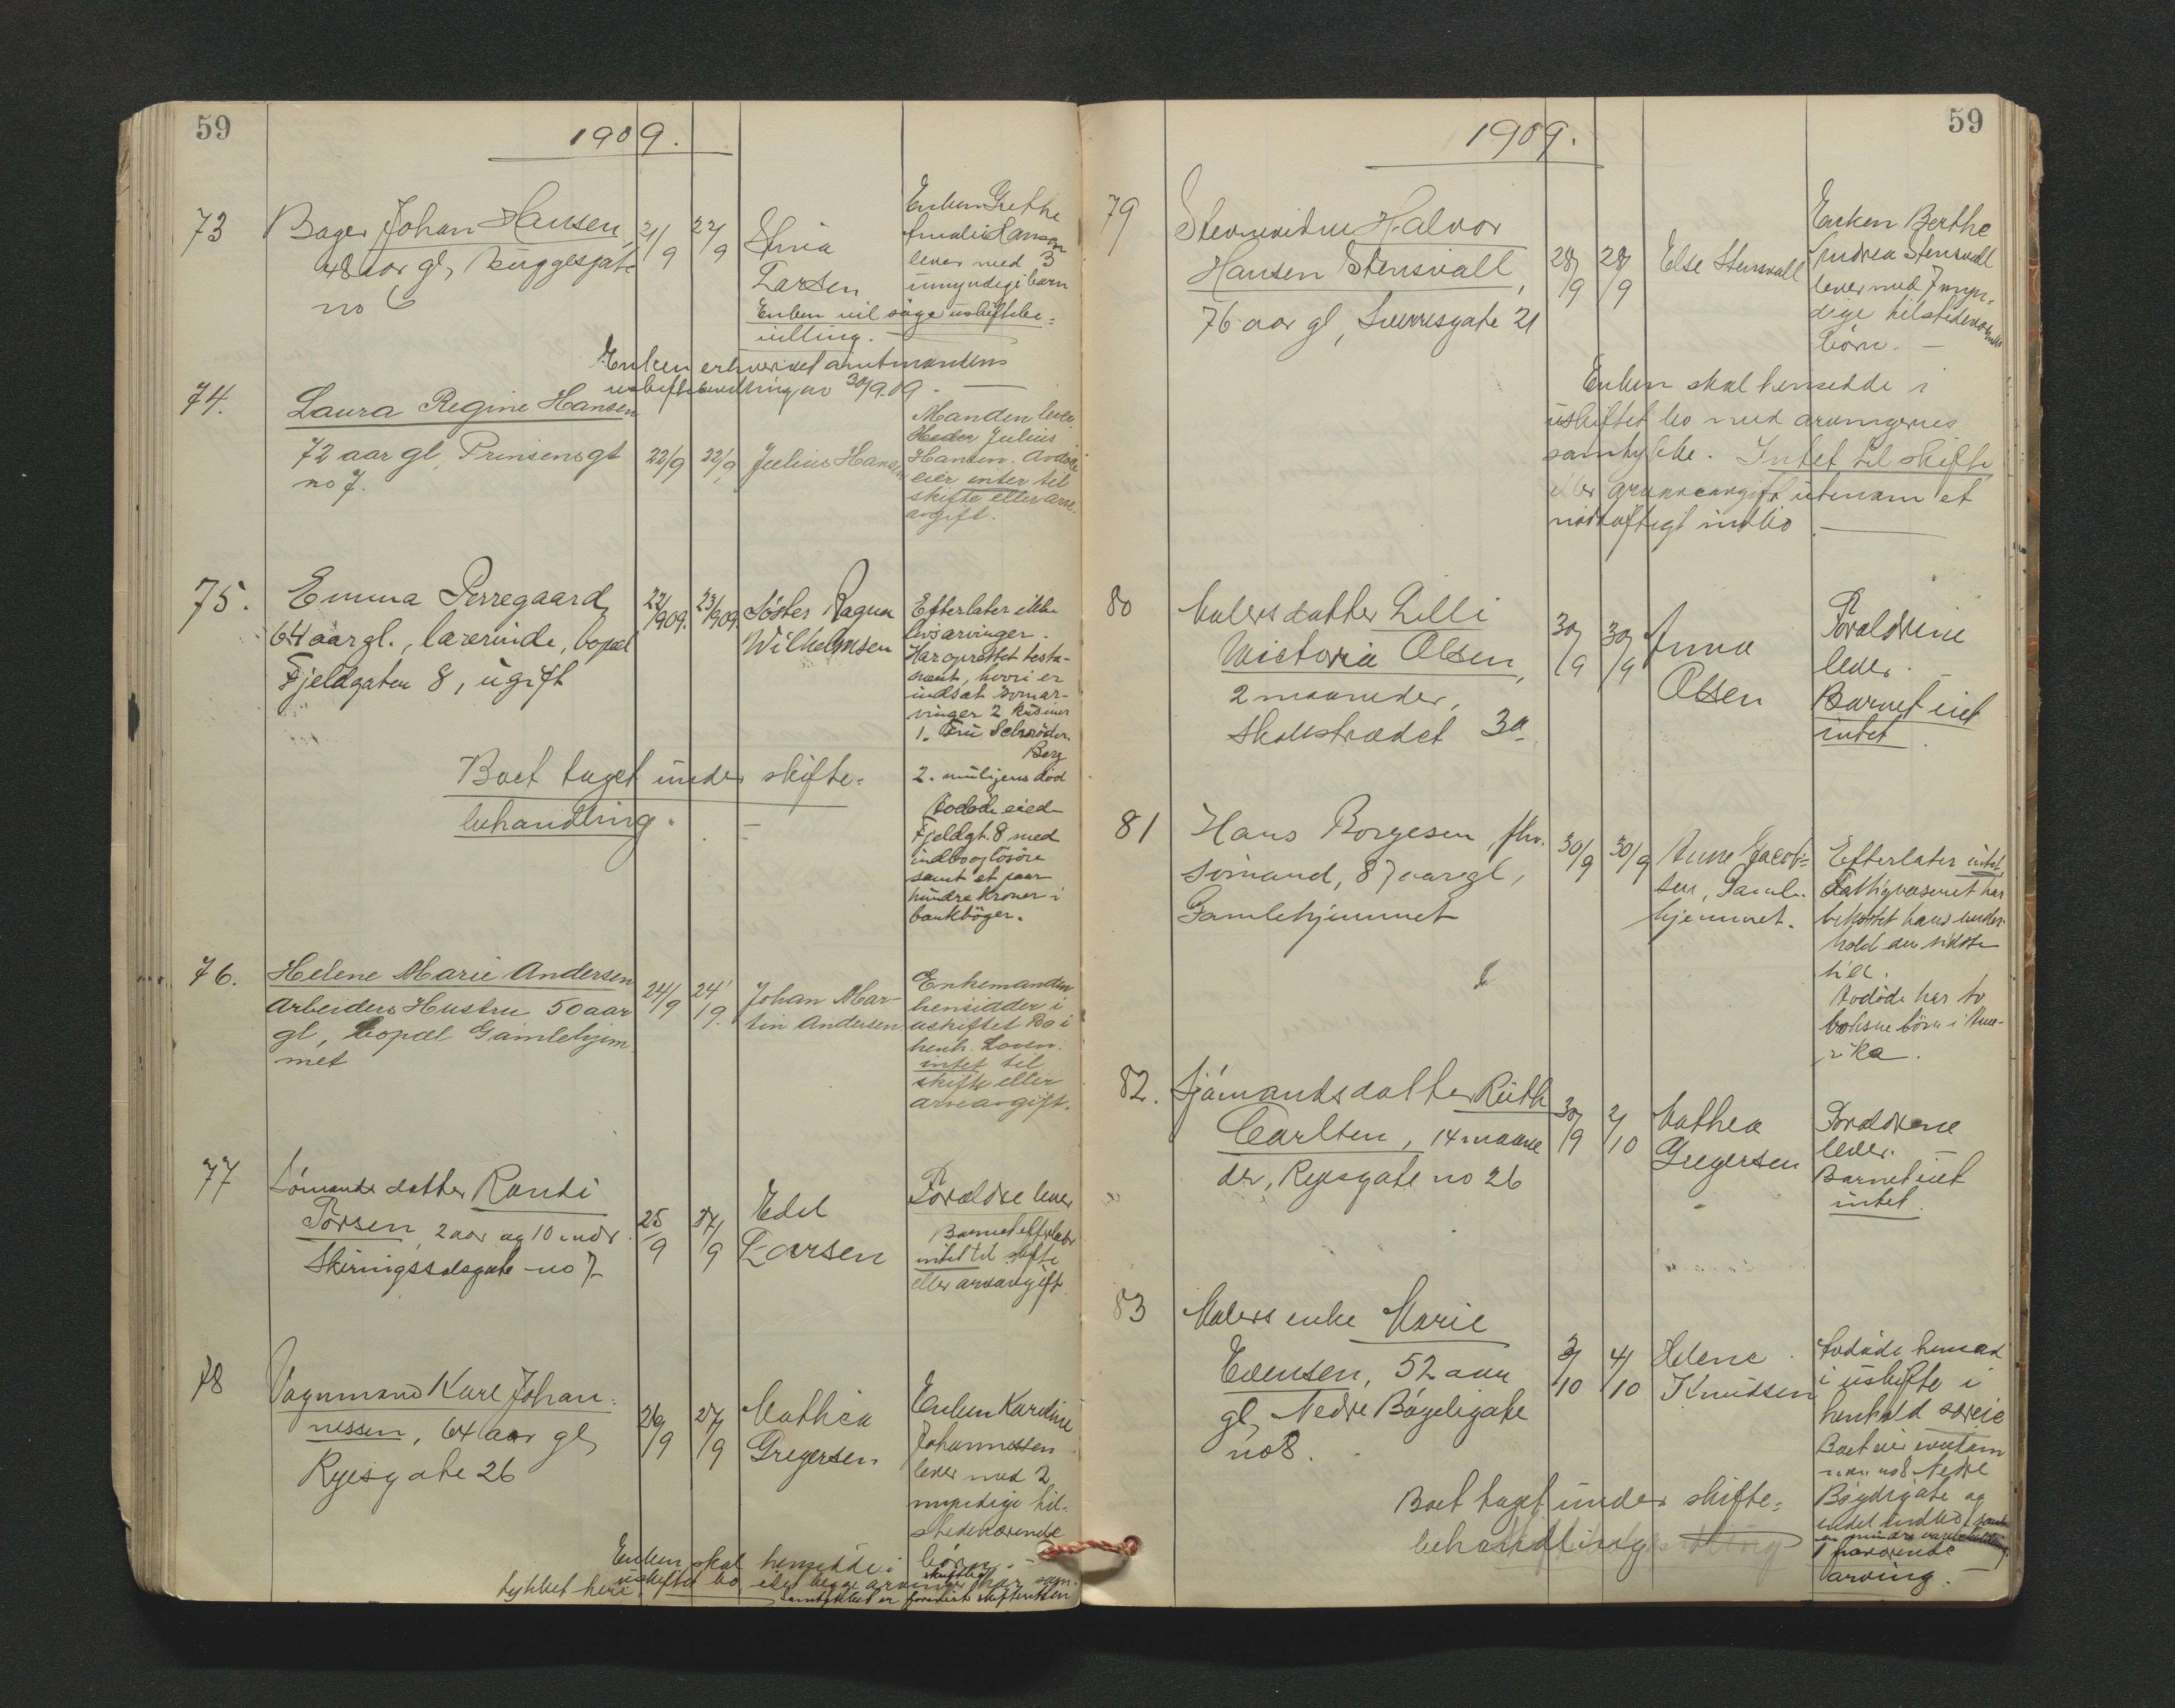 59
1909.
73
Bager Johan Hansen,
48 aar gl, Kuggesgate
no 6
21/9
22/9
Larsen
Enken Grethe
Amalie Hansen
lever med 3
umyndige barn
Enken vil søge uskiftebe=
villing.
Enken erhvervet amtmandens
uskiftebevilling av 30/9.09.
74.
Laura Regine Hansen
72 aar gl, Prinsensgt
no 7.
22/9
22/9
Julius Hansen
Manden lever
Heder Julius
Hansen. Avdøde
eier intet til
skifte eller arve-
avgift.
75.
Emma Perregaard,
64 aar gl., lærerinde, bopæl
Fjeldgaten 8, ugift
22/909.
23/909.
Søster Ragna
Wilhelmsen
Efterlater ikke
livsarvinger.
Har oprettet testa-
ment, hvori er
indsat som ar-
vinger 2 kusiner
1. Fru Schrøder
Berg
2. muligens død
Avdøde eied
Fjeldgt. 8 med
indbo og løsøre
samt et paar
hundre kroner i
bankbøger.
Boet taget under skifte=
behandling. —
76.
Helene Marie Andersen
Arbeiders Hustru 50 aar
gl, bopæl Gamlehjem
met
24/9
24/9.
Johan Mar-
tin Andersen
Enkemanden
hensidder i
uskiftet Bo i
henh. Loven.
intet til
skifte eller
arveavgift.
77
Sømands datter Randi
Torsen, 2 aar og 10 mdr.
Skiringssalsgate no 7
25/9
27/9
Edel
Larsen
Forældre lever
Barnet efterlater
intet til skifte
eller arveavgift.
78
Vognmand Karl Johan=
nessen, 64 aar gl,
Ryesgate 26
26/9
27/9
Mathea
Gregersen
Enken Karoline
Johannessen
lever med 2
myndige til-
stedeværende
børn. -
Enken skal hensidde i
uskiftet bo, idet begge arvinger har skriftlig sam-
tykket heri. Samtykket er forevist skifteretten
59
1909.
79
Halvor
Hansen Stensvall,
76 aar gl, Sverresgate 21
28/9
28/9
Else Stensvall
Enken Berthe
Andrea Stensvall
lever med 7 myn-
dige tilstedeværende
børn. —
Enken skal hensidde i
uskiftet bo med arvingernes
samtykke. Intet til skifte
eller arveavgift utenom et
nødtørftigt indbo. —
80
Malers datter Lilli
Victoria Olsen,
2 maaneder,
30/9
30/9
Anna
Olsen
Forældrene
lever. -
Barnet eiet
intet.
81
Hans Borgesen, fhv.
sømand, 87 aar gl,
Gamlehjemmet
30/9
30/9
Anne Jacob=
sen, Gamle-
hjemmet.
Efterlater intet,
Fattigvæsenet har
bekostet hans under-
hold den sidste
tid.
Avdøde har to
voksne børn i Ame-
rika.
82.
Sjømandsdatter Ruth
Carlsen, 14 maane
der, Ryesgate no 26
30/9
2/10
Mathea
Gregersen
Forældrene
lever. —
Barnet eiet
intet.
83
Malers enke Marie
Evensen, 52 aar
gl, Nedre Bøgeligate
no 8.
3/10
4/10
Helene
Knudsen
Avdøde hensad
i uskifte i
henhold
Boet eier
no 8 Nedre
og
endel indbo, samt
en mindre varebeholdning.
1 fraværende
arving. —
Boet taget under skifte=
behandling